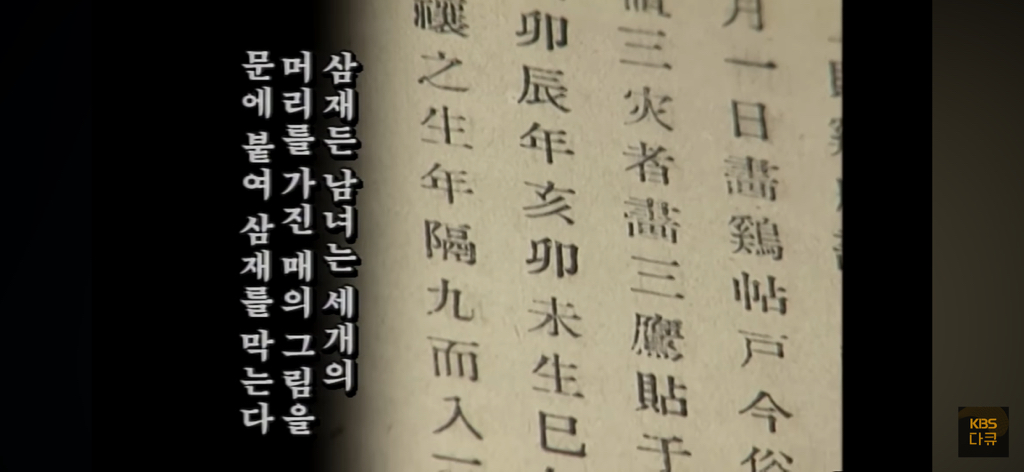 삼재든 남녀는 세개의
머리를 가진 매의 그림을
문에 붙여 삼재를 막는다
月一日畵鷄帖戶今俗
三灾者畵三鷹貼于
卯辰年亥卯未生巳
禳之生年隔九而入
KBS
다큐